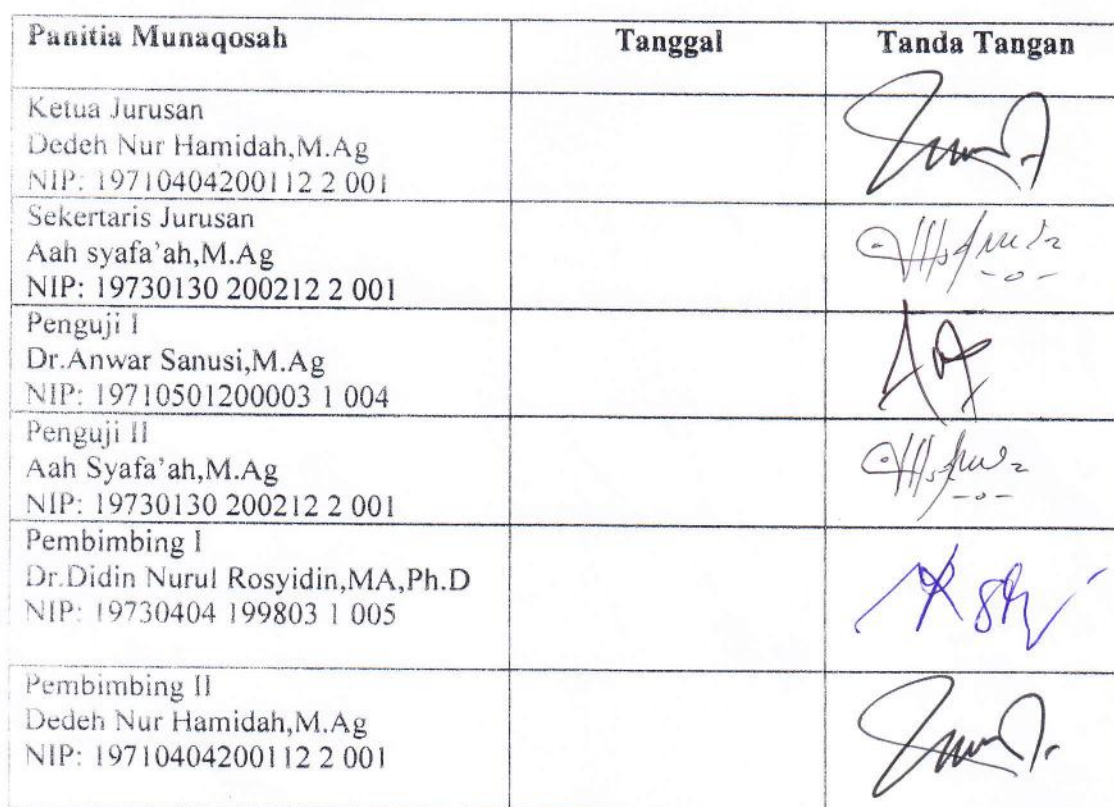 Panitia Munaqosah Tanggal Tanda Tangan
Ketua Jurusan
Dedeh Nur Hamidah,M.Ag
NIP: 19710404200112 2 001
Sekertaris Jurusan
Aah syafa'ah,M.Ag
NIP: 19730130 200212 2 001
Penguji I
Dr.Anwar Sanusi,M.Ag
NIP: 19710501200003 1 004
Penguji II
Aah Syafa'ah,M.Ag
NIP: 19730130 200212 2 001
Pembimbing I
Dr.Didin Nurul Rosyidin,MA,Ph.D
NIP: 19730404 199803 1 005
Pembimbing II
Dedeh Nur Hamidah,M.Ag
NIP: 19710404200112 2 001